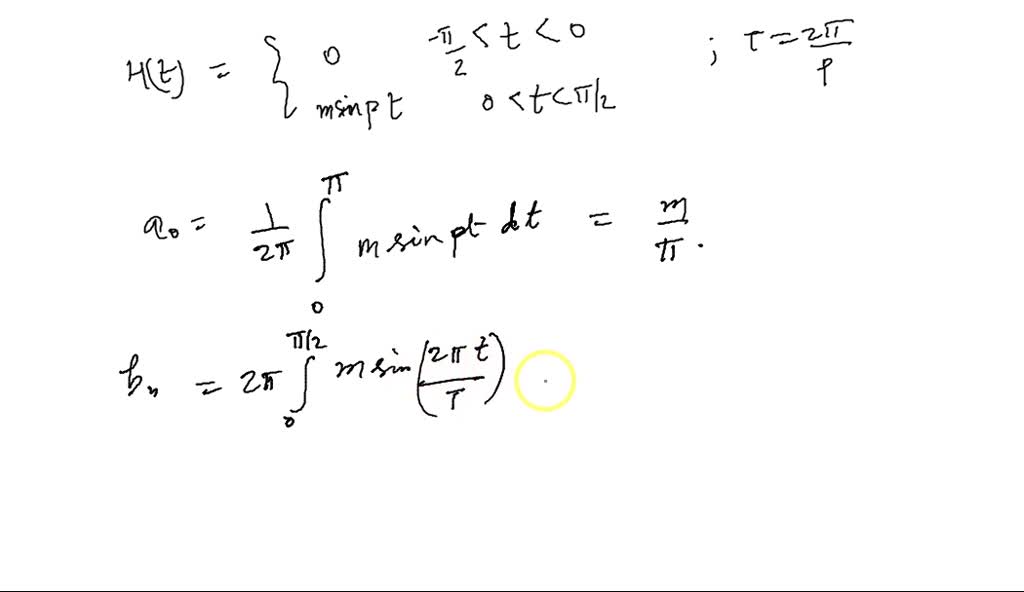 H(t) = { 0 -π/2 < t < 0 ; T = 2π/p
m sin pt 0 < t < π/2
a₀ = 1/2π ∫₀^π m sin pt dt = m/π .
bₙ = 2π ∫₀^π/2 m sin (2πt/T)